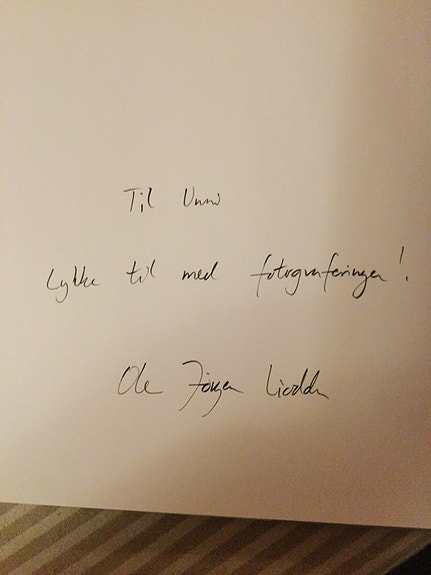 Til Unni
Lykke til med fotograferingen!
Ole Jørgen Liodden